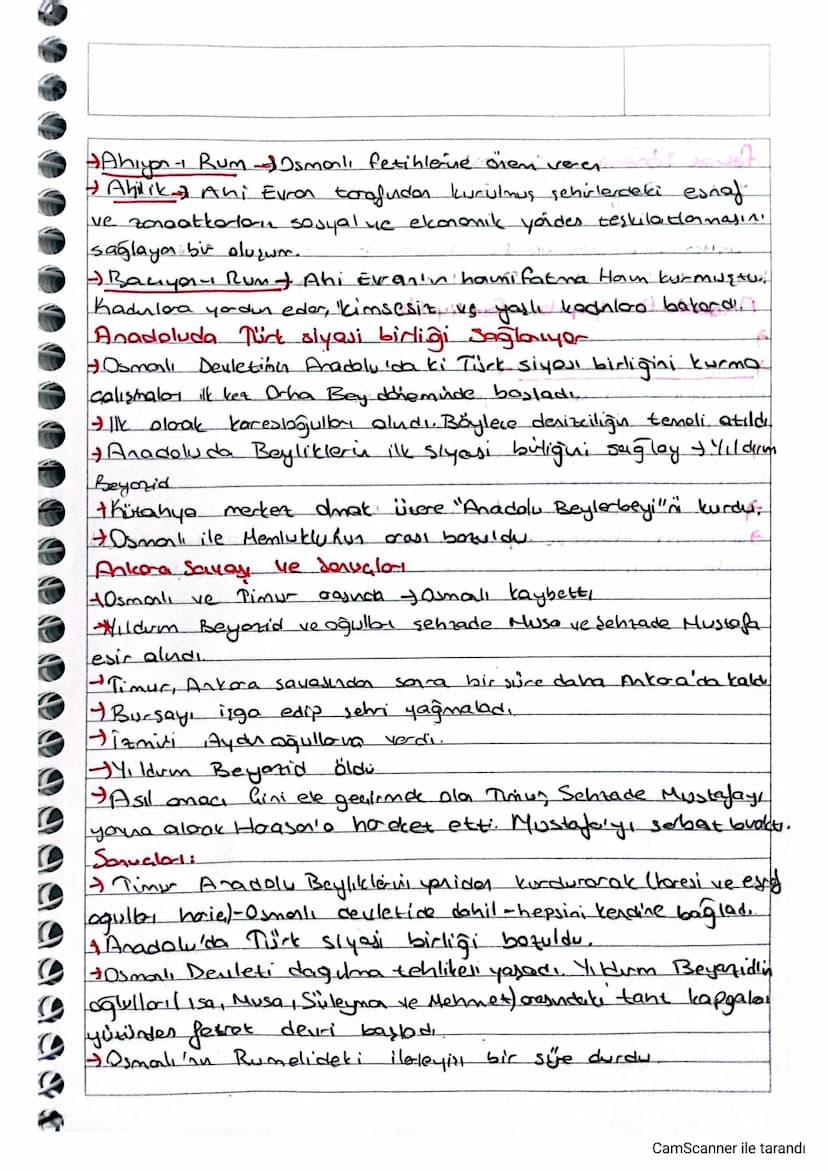 →Ahıyan-ı Rum →Osmanlı fetihlerine önem veren
→ Ahilik→ Ahi Evran tarafından kurulmuş şehirlerdeki esnaf
ve zanaatkarların sosyal ve ekonomik yönden teşkilatlanmasını
sağlayan bir oluşum.
→Bacıyan-ı Rum→ Ahi Evran'ın hanımı Fatma Hanım kurmuştur.
Kadınlara yardım eder, kimsesiz ve yaşlı kadınlara bakardı.
Anadoluda Türk siyasi birliği Sağlanıyor
→Osmanlı Devletinin Anadolu'da ki Türk siyasi birliğini kurma
çalışmaları ilk kez Orhan Bey döneminde başladı.
→İlk olarak Karesioğulları alındı. Böylece denizciliğin temeli atıldı.
→Anadoluda Beyliklerin ilk siyasi birliğini sağlay →Yıldırım
Beyazid
→Kütahya merkez olmak üzere "Anadolu Beylerbeyi"ni kurdu.
→Osmanlı ile Memluklunun arası bozuldu.
Ankara Savaşı ve Sonuçları
→Osmanlı ve Timur arasında →Osmanlı kaybetti
→Yıldırım Beyazid ve oğulları şehzade Musa ve Şehzade Mustafa
esir alındı.
→Timur, Ankara savaşından sonra bir süre daha Ankara'da kaldı
→Bursayı işgal edip şehri yağmaladı.
→İzmiri Aydınoğullarına verdi.
→Yıldırım Beyazid öldü
→Asıl amacı Çini ele geçirmek olan Timur, Şehzade Mustafayı
yanına alarak Horasan'a hareket etti. Mustafa'yı serbat bıraktı.
Sonuçları:
→ Timur Anadolu Beyliklerini yeniden kurdurarak (Karesi ve eşref
oğulları hariç)-Osmanlı devletide dahil-hepsini kendine bağladı.
→Anadolu'da Türk siyasi birliği bozuldu.
→Osmanlı Devleti dağılma tehlikesi yaşadı. Yıldırım Beyazidin
oğulları(İsa, Musa, Süleyman ve Mehmet)arasındaki taht kavgaları
yüzünden fetret devri başladı
→Osmanlı'nın Rumelideki ilerleyişi bir süre durdu.
CamScanner ile tarandı